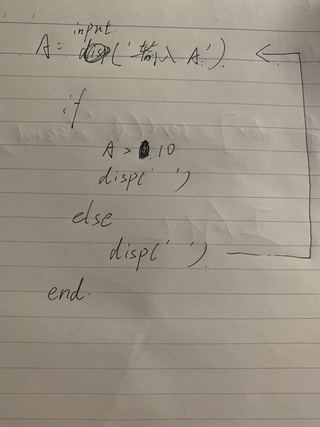 input
A = disp('输入 A')
if
A > 10
disp(' ')
else
disp(' ')
end.